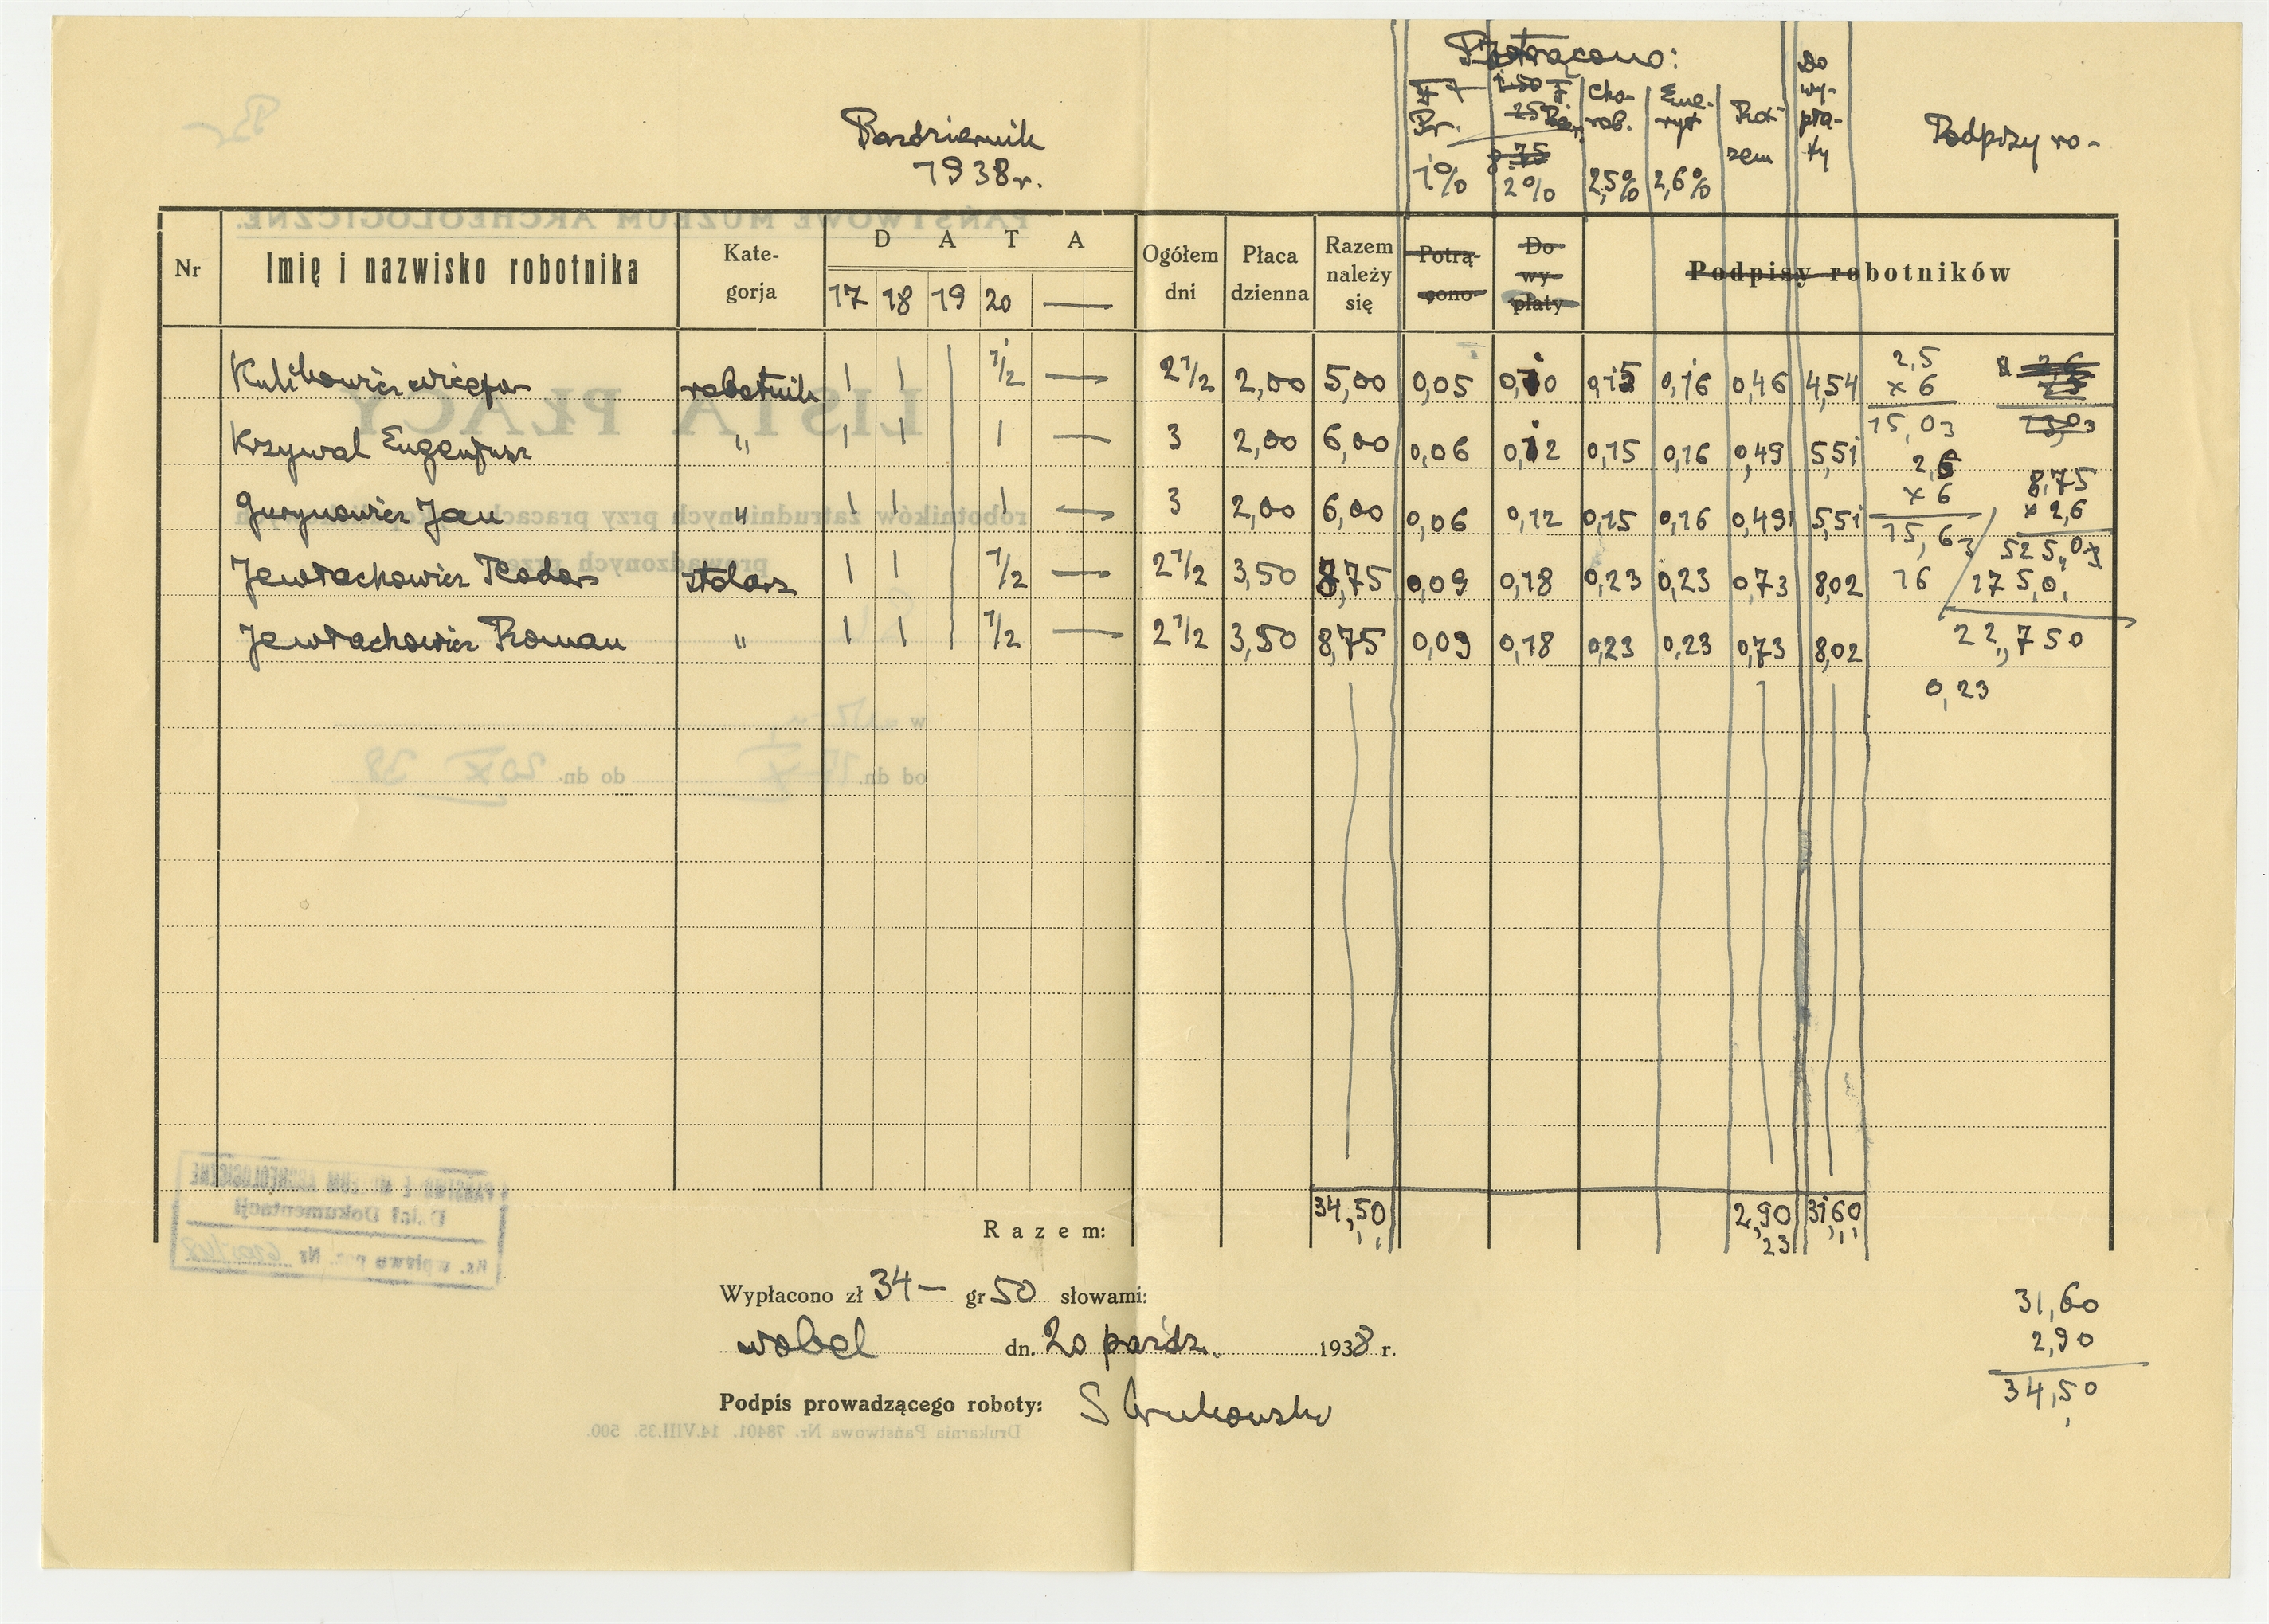 Październik
1938 r.
Potrącono:
F. Pr. 1%
2%
Cho-
rob.
2,5%
Eme-
ryt
2,6%
Ra-
zem
Do
wy-
pła-
ty
Podpisy ro-
Nr
Imię i nazwisko robotnika
Kate-
gorja
D A T A
17 18 19 20 —
Ogółem
dni
Płaca
dzienna
Razem
należy
się
Potrą-
cono
Do
wy-
płaty
Podpisy robotników
Kulikowicz robotnik 1 1 1/2 — 2 1/2 2,00 5,00 0,05 0,10 0,15 0,16 0,46 4,54
Krzywal Eugenjusz " 1 1 1 — 3 2,00 6,00 0,06 0,12 0,15 0,16 0,49 5,51
Gurynowicz Jan " 1 1 1 — 3 2,00 6,00 0,06 0,12 0,15 0,16 0,49 5,51
Jewtachowicz Teodor stolarz 1 1 1/2 — 2 1/2 3,50 8,75 0,09 0,18 0,23 0,23 0,73 8,02
Jewtachowicz Roman " 1 1 1/2 — 2 1/2 3,50 8,75 0,09 0,18 0,23 0,23 0,73 8,02
2,5
x 6
15,03
2,6
x 6
15,63
16
8,75
x 2,6
525,0
175,0
22,750
0,23
Razem: 34,50 2,90 31,60
23
Wypłacono zł 34— gr 50 słowami:
dn. 20 paźdz. 1938 r.
Podpis prowadzącego roboty:
31,60
2,90
34,50
PAŃSTWOWE MUZEUM ARCHEOLOGICZNE.
LISTA PŁACY
robotników zatrudnionych przy pracach
prowadzonych przez
w
od dn. 17 X do dn. 20 X 38
PAŃSTWOWE MUZEUM ARCHEOLOGICZNE
Dział Dokumentacji
Ks. wpływu poz. Nr
Drukarnia Państwowa Nr. 78401. 14.VIII.35. 500.